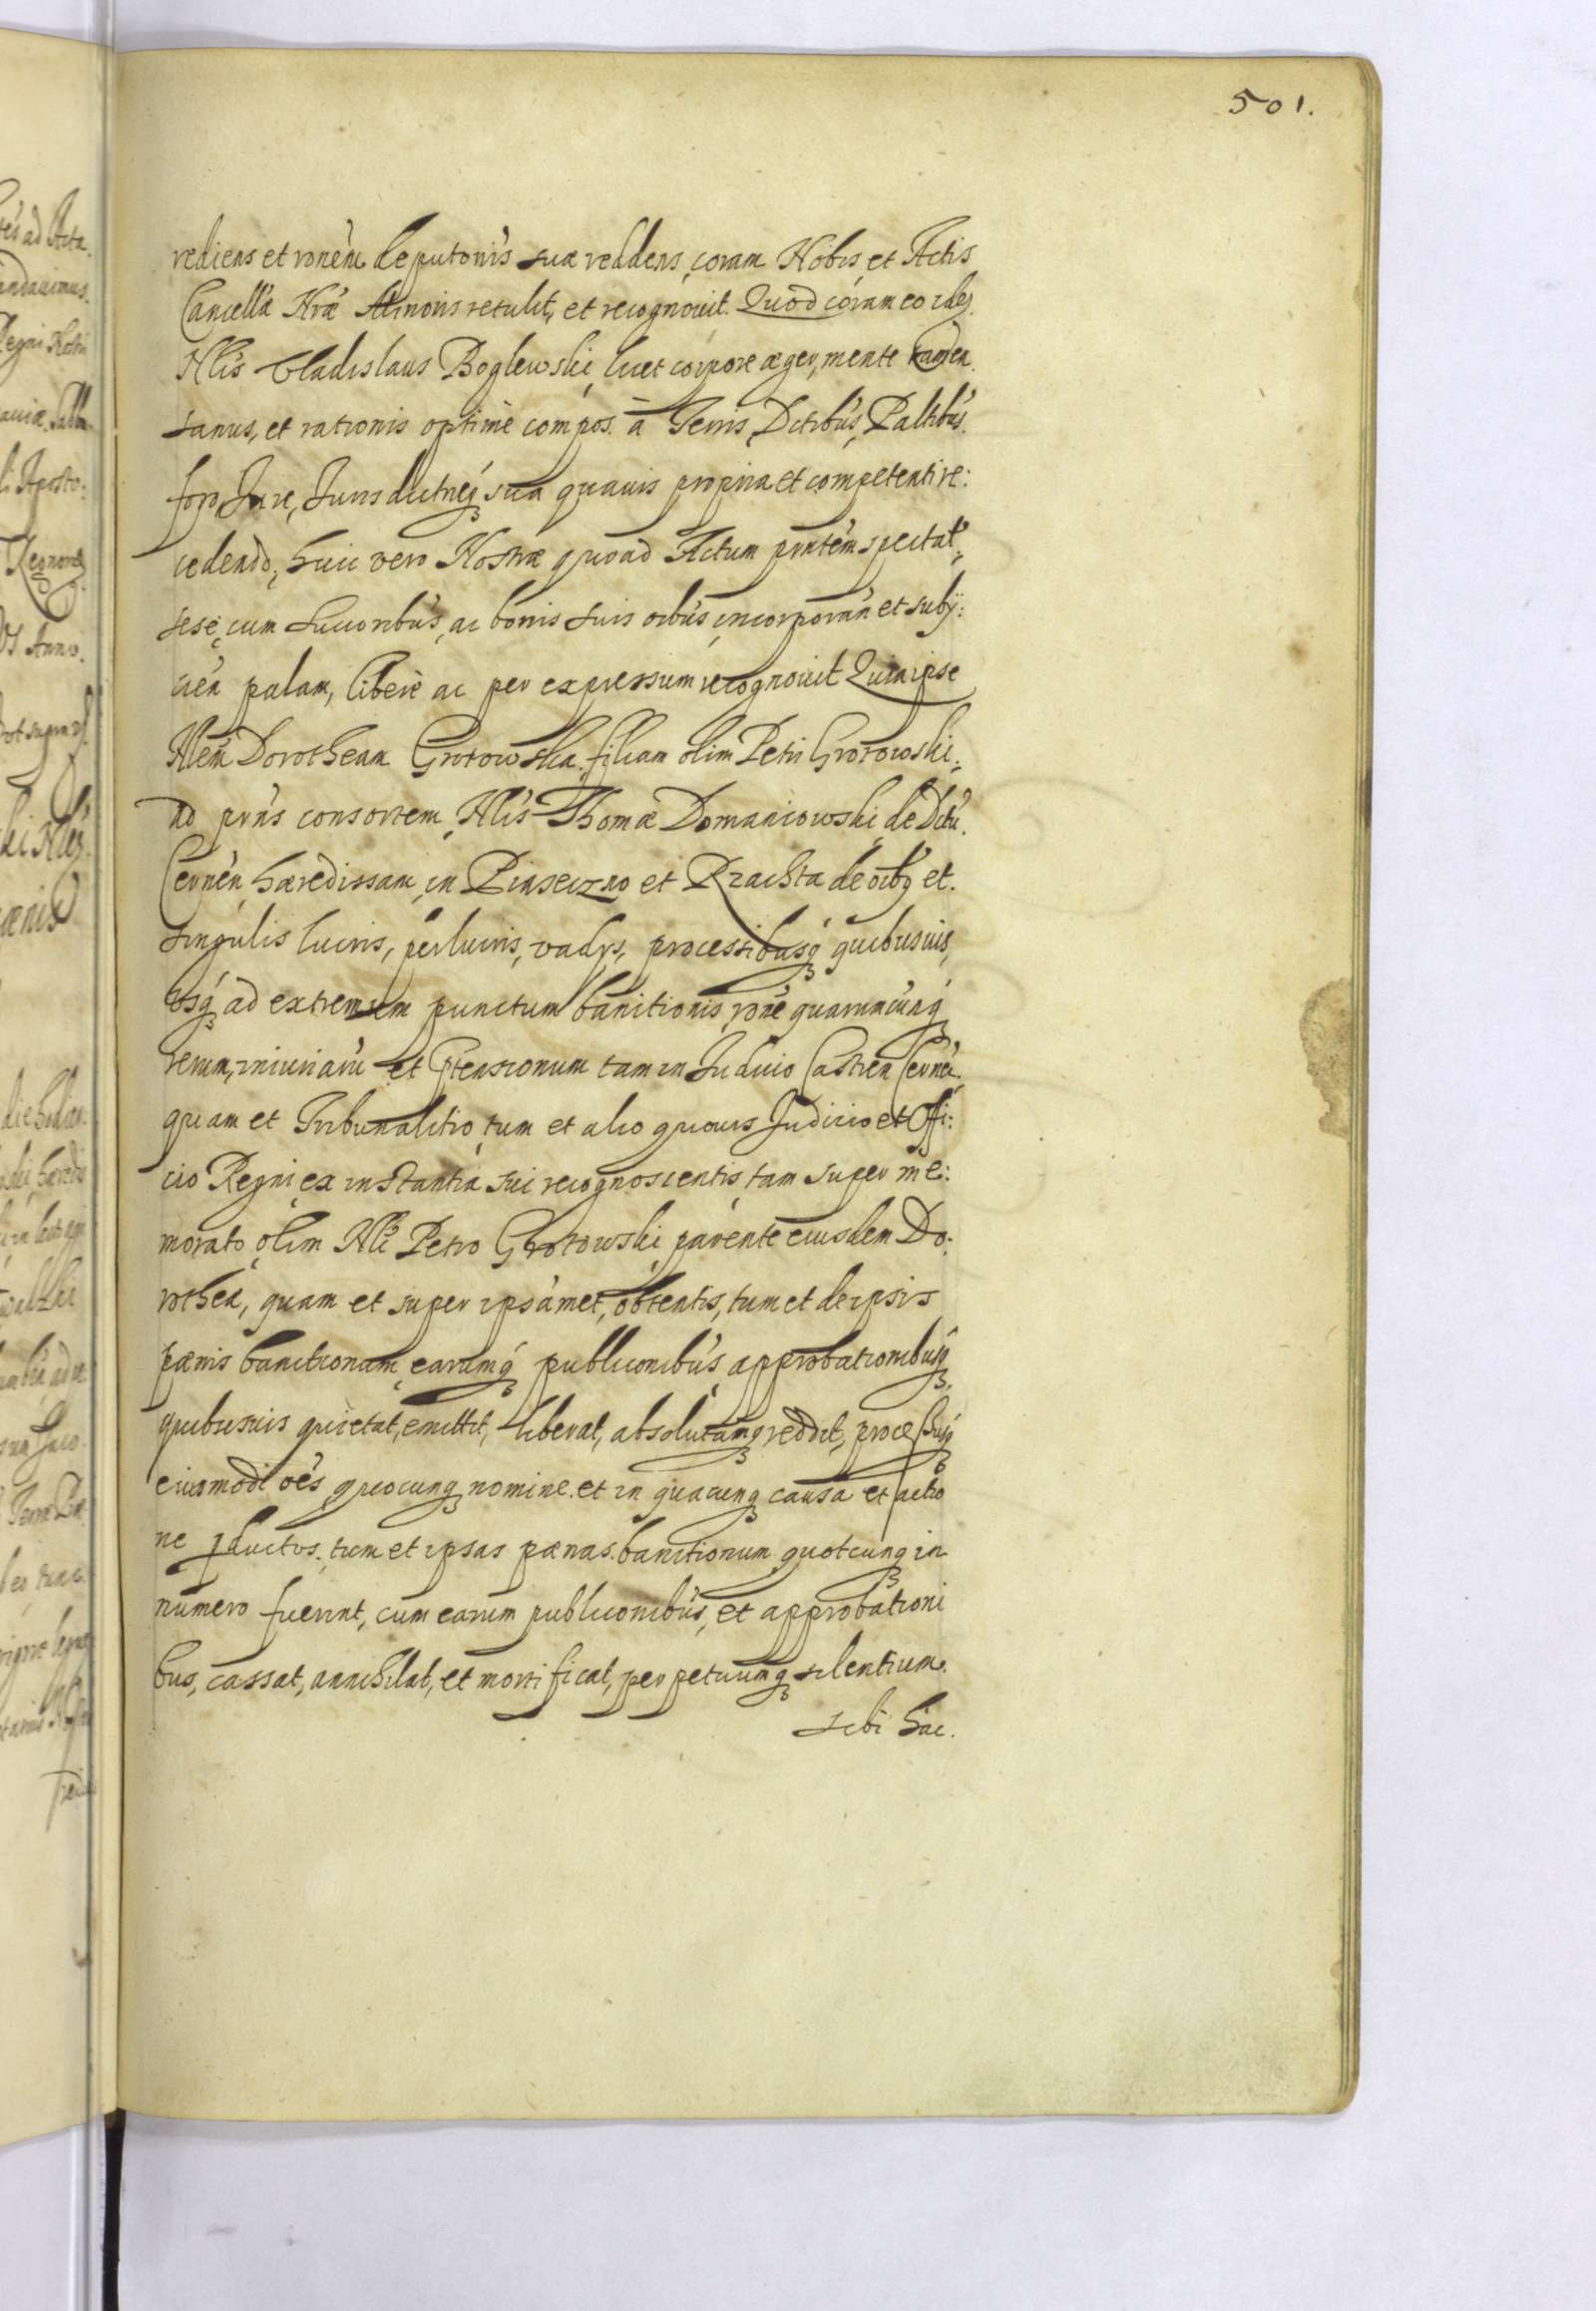 501.
rediens et ronem deputonis suæ reddens, coram Nobis, et Actis
Cancellæ Nræ Minoris retulit, et recognouit. Quod coram eo idem
Nlis Vladislaus Boglewski, licet corpore æger, mente tamen
sanus, et rationis optimè compos. à Terris, Dctibus, Paltibus.
foro Jure, Jurisdictneq sua quauis propria et competenti re:
cedendo, huic vero Nostræ quoad Actum prntem spectat:
sese, cum succoribus, ac bonis suis oibus, incorporan et subij:
cien palam, liberè ac per expressum recognouit Quia ipse
Nlem Dorotheam Grotowska. filiam olim Petri Grotowski,
ad prns consortem, Nlis Thomæ Domaniowski, de Dctu.
Cernen, hæredissam, in Piaseczno et Rzachta de oibq et.
singulis lucris, perlucris, vadijs, processibusq quibusuis,
vsq ad extremum punctum banitionis, rone quaruncunq
rerum, iniuriaru et Ptensionum tam in Judicio Castren Cernen.
quam et Tribunalitio, tum et alio quouis Judicio et Offi:
cio Regni, ex instantia sui recognoscentis, tam super me:
morato, olim Nli Petro Grotowski, parente eiusdem Do:
rotheæ, quam et super ipsamet, obtentis, tum et de ipsis
pænis banitionum, earumq publiconibus, approbationibusq
quibusuis quietat, emittit, liberat, absolutamq reddit, processusq
eiusmodi oes quocunq nomine. et in quacunq causa et actio
ne Pductos. tum et ipsas pænas. banitionum, quotcunq in
numero fuerint, cum earum publiconibus, et approbationi
bus, cassat, annihilat, et mortificat, perpetuumq silentium.
sibi hac.